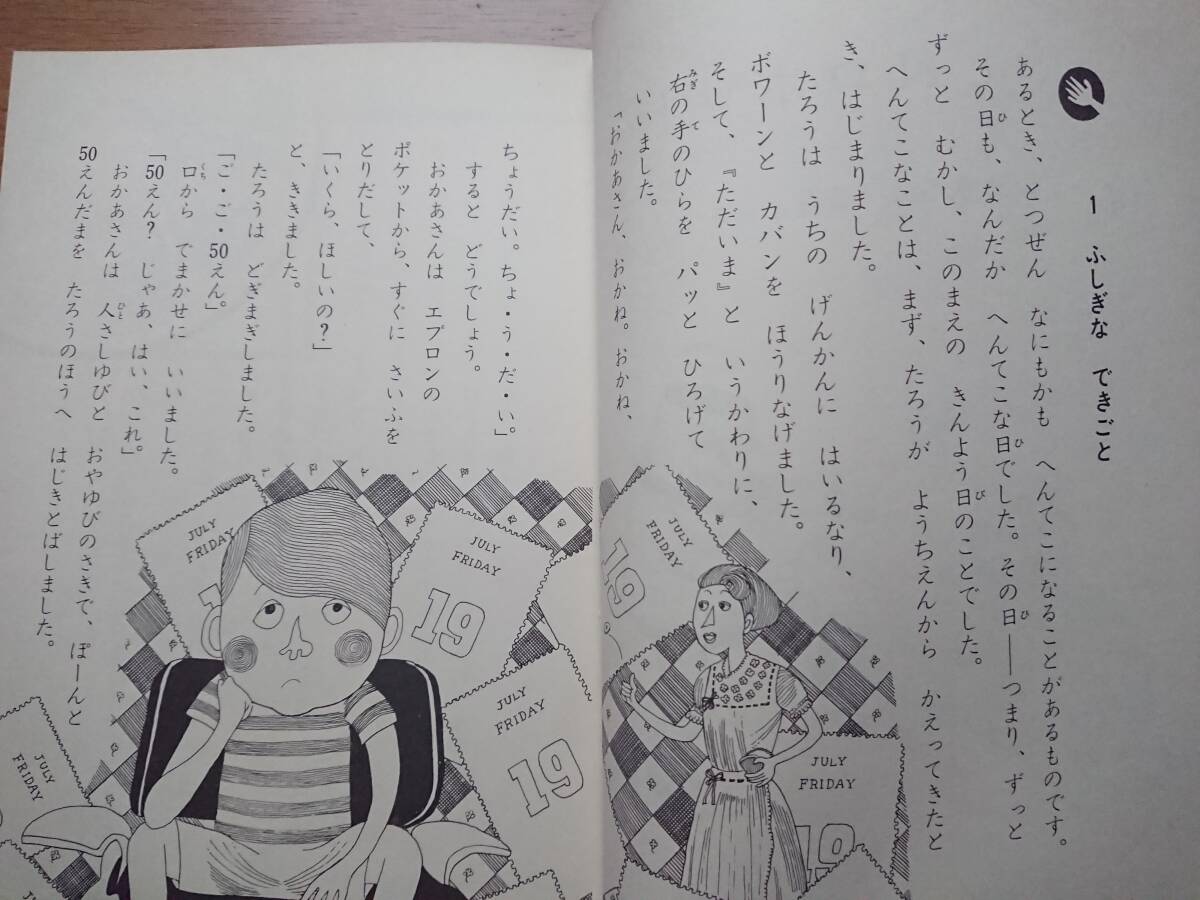 1 ふしぎな できごと
あるとき、とつぜん なにもかも へんてこになることがあるものです。
その日も、なんだか へんてこな日でした。その日――つまり、ずっと
ずっと むかし、このまえの きんよう日のことでした。
へんてこなことは、まず、たろうが ようちえんから かえってきたと
き、はじまりました。
たろうは うちの げんかんに はいるなり、
ボワーンと カバンを ほうりなげました。
そして、『ただいま』と いうかわりに、
右の手のひらを パッと ひろげて
いいました。
「おかあさん、おかね。おかね、
ちょうだい。ちょ・う・だ・い。」
すると どうでしょう。
おかあさんは エプロンの
ポケットから、すぐに さいふを
とりだして、
「いくら、ほしいの?」
と、ききました。
たろうは どぎまぎしました。
「ご・ご・50えん。」
口から でまかせに いいました。
「50えん? じゃあ、はい、これ。」
おかあさんは 人さしゆびと おやゆびのさきで、ぽーんと
50えんだまを たろうのほうへ はじきとばしました。
JULY
FRIDAY
19
JULY
FRIDAY
19
JULY
FRIDAY
19
JULY
FRIDAY
19
JULY
FRIDAY
JULY
FRIDAY
19